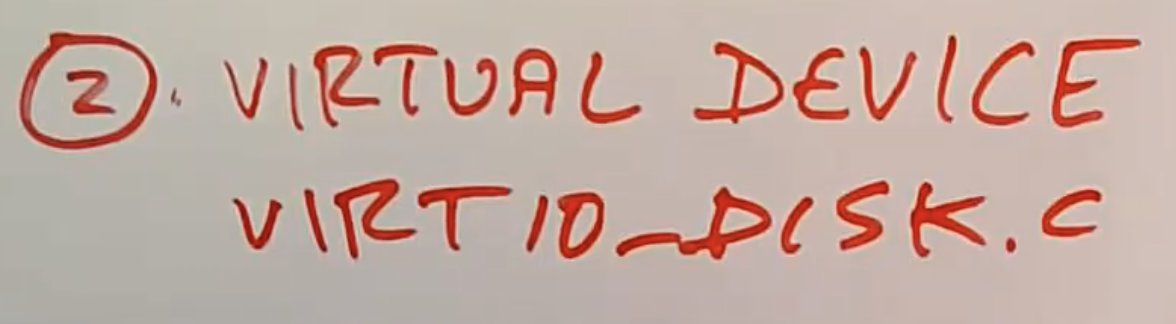 ②. VIRTUAL DEVICE
VIRTIO_DISK.C